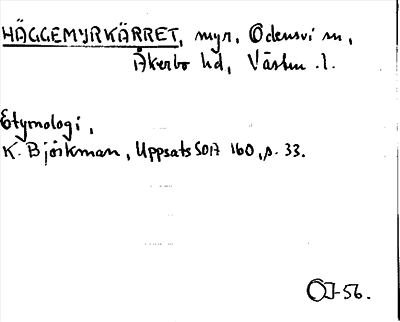 HÄGGEMYRKÄRRET, myr, Odensvi sn,
Åkerbo hd, Västm. l.
Etymologi,
K. Björkman, Uppsats SOA 160, s. 33.
OJ-56.